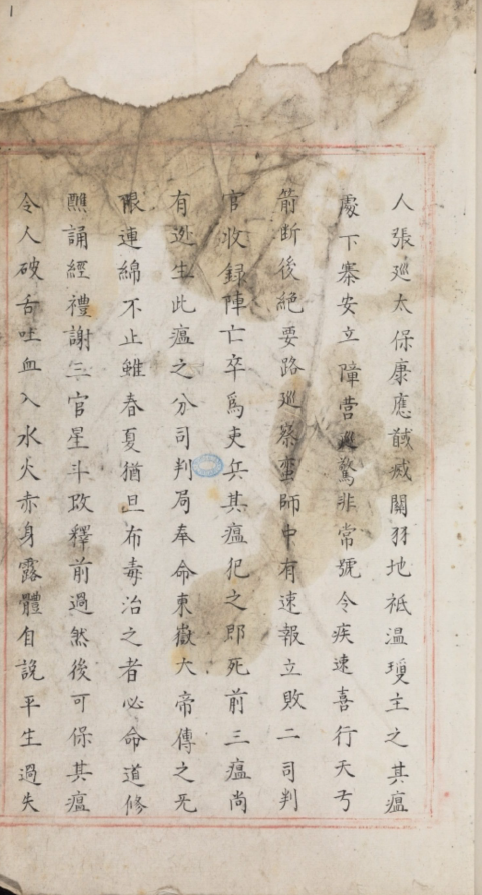 人張巡太保康應馘烕關羽地祗温瓊主之其瘟
處下寨安立障营巡驚非常號令疾速喜行天丂
箭断後絶要路巡察蛮師中有速報立敗二司判
官收録陣亡卒爲吏兵其瘟犯之即死前三瘟尚
有迯生此瘟之分司判局奉命東嶽大帝傳之旡
限連綿不止雖春夏猶旦布毒治之者必命道修
醮誦經禮謝三官星斗改釋前過然後可保其瘟
令人破舌吐血入水火赤身露體自説平生過失
1